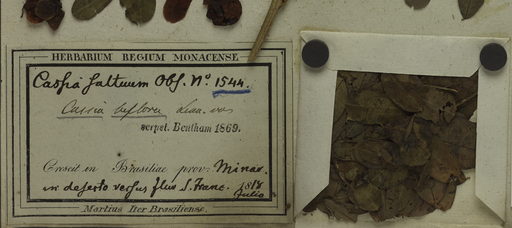 HERBARIUM REGIUM MONACENSE
Cassia saltuum Obs. No. 1544.
Cassia biflora Linn. var
serpet. Bentham 1869.
Crescit in Brasiliae prov: Minar.
in deserto versus fluv S. Franc. 1818
Julio
Martius Iter Brasiliense.